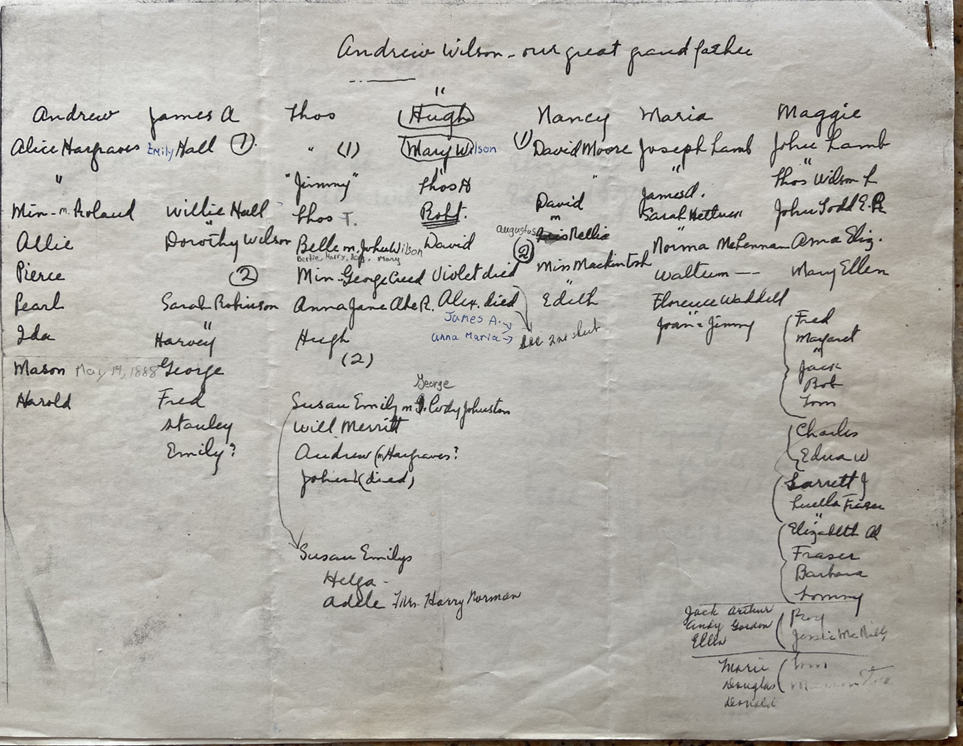 Andrew Wilson - our great grand father
"
Andrew James A Thos Hugh Nancy Maria Maggie
Alice Hargraves Emily Hall (1). " (1) Mary Wilson (1) David Moore Joseph Lamb John Lamb
" "Jimmy" Thos H David " James A. Thos Wilson L
Min - m. Roland Willie Hall Thos T. Robt. m Sarah John Todd E.R
Allie Dorothy Wilson Belle m. John Wilson David Augustus Nellie Norma McLennan Anna Eliz.
Bertie, Harry, Mary
Pierce (2) Min - George Creed Violet died (2) Miss Mackintosh Waltum -- Mary Ellen
Pearl Sarah Robinson Anna Jane Abe R. Alex. died Edith Florence Waddell
Ida Harvey Hugh James A. → See 2nd sheet Joan & Jimmy Fred
Anna Maria → Margaret
Mason May 14, 1888 George (2) "
Jack
Bob
Harold Fred George Tom
Susan Emily m Cody Johnston
Stanley Will Merritt Charles
Emily? Andrew (m Hargraves? Edna W
John (died) Garrett J
Luella Fraser
"
Susan Emilys Elizabeth A
Helga - Fraser
Adele Mrs. Harry Norman Barbara
Tommy
Jack Arthur Roy
Andy Gordon Jessie
Ellen
Marie Tom
Douglas
Donald